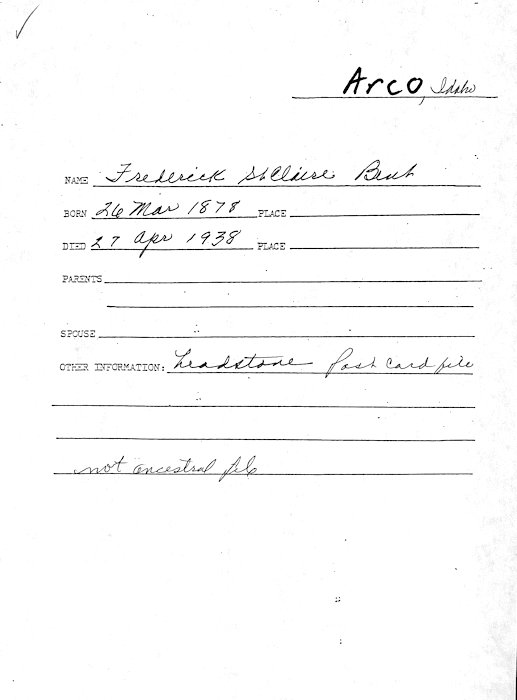 Arco, Idaho
NAME Frederick St Claire
BORN 26 Mar 1878 PLACE
DIED 27 Apr 1938 PLACE
PARENTS
SPOUSE
OTHER INFORMATION: headstone Post card file
not ancestral file